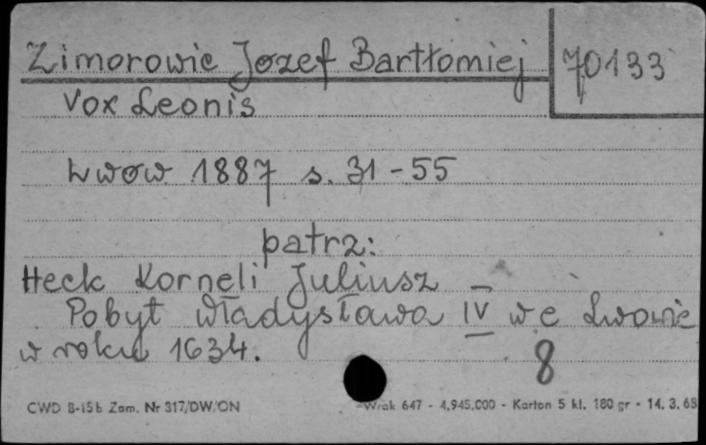 Zimorowic Jozef Bartłomiej
70133
Vox Leonis
Lwow 1887 s. 31-55
patrz:
Heck Korneli Juliusz –
Pobyt Władysława IV we Lwowie
w roku 1634.
8
CWD B-15b Zam. Nr 317/DW/ON
Wrak 647 - 4,945,000 - Karton 5 kl. 180 gr - 14. 3. 68